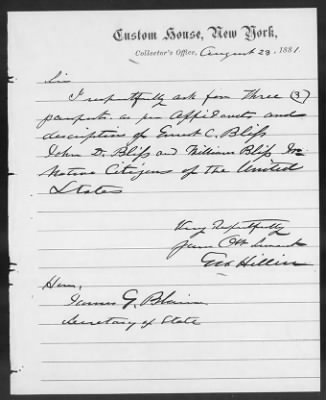 Custom House, New York,
Collector's Office, August 23. 1881.
Sir
I respectfully ask for Three (3)
passports as per Affidavits and
description of Ernest C. Bliss
John D. Bliss and William Bliss Jr.
Native Citizens of the United
States
Very Respectfully
Your Obt Servant
Geo Hillier
Hon.
James G. Blaine
Secretary of State